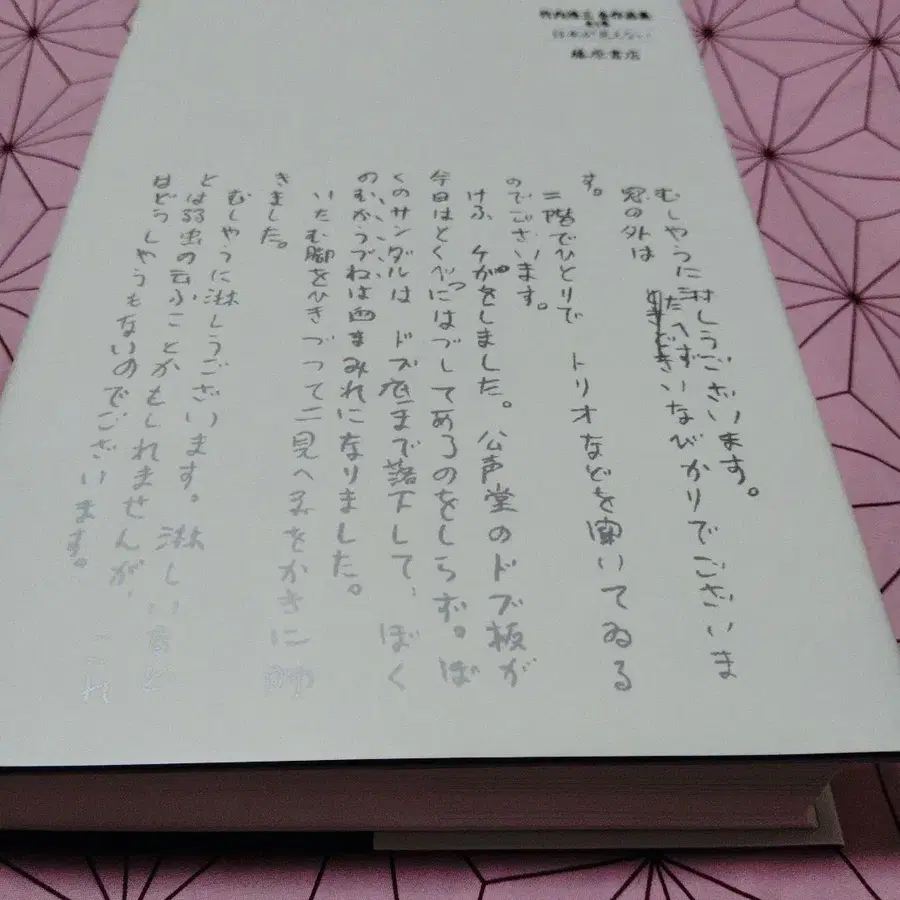 竹内浩三全作品集
日本が見えない
藤原書店
むしやうに淋しうございます。
窓の外は たへずいなびかりでございま
す。
二階でひとりで トリオなどを聞いてゐる
のでございます。
けふ ケガをしました。公声堂のドブ板が
今日はとくべつにはづしてあるのをしらず。ぼ
くのサンダルは ドブ底まで落下して、ぼく
のむかうづねは血まみれになりました。
いたむ脚をひきづつて二見へ字をかきに帰
きました。
むしやうに淋しうございます。淋しい など
とは弱虫の云ふことかもしれませんが、これ
はどうしやうもないのでございます。